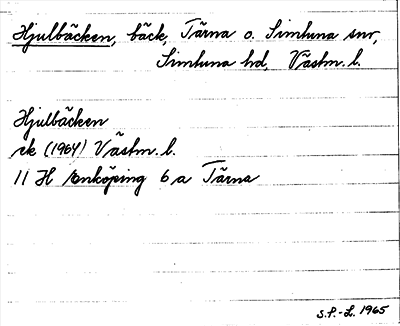 Hjulbäcken, bäck, Tärna o. Simtuna snr,
Simtuna hd, Västm. l.
Hjulbäcken
ek (1964) Västm. l.
11 H Enköping 6 a Tärna
S.P.-L. 1965